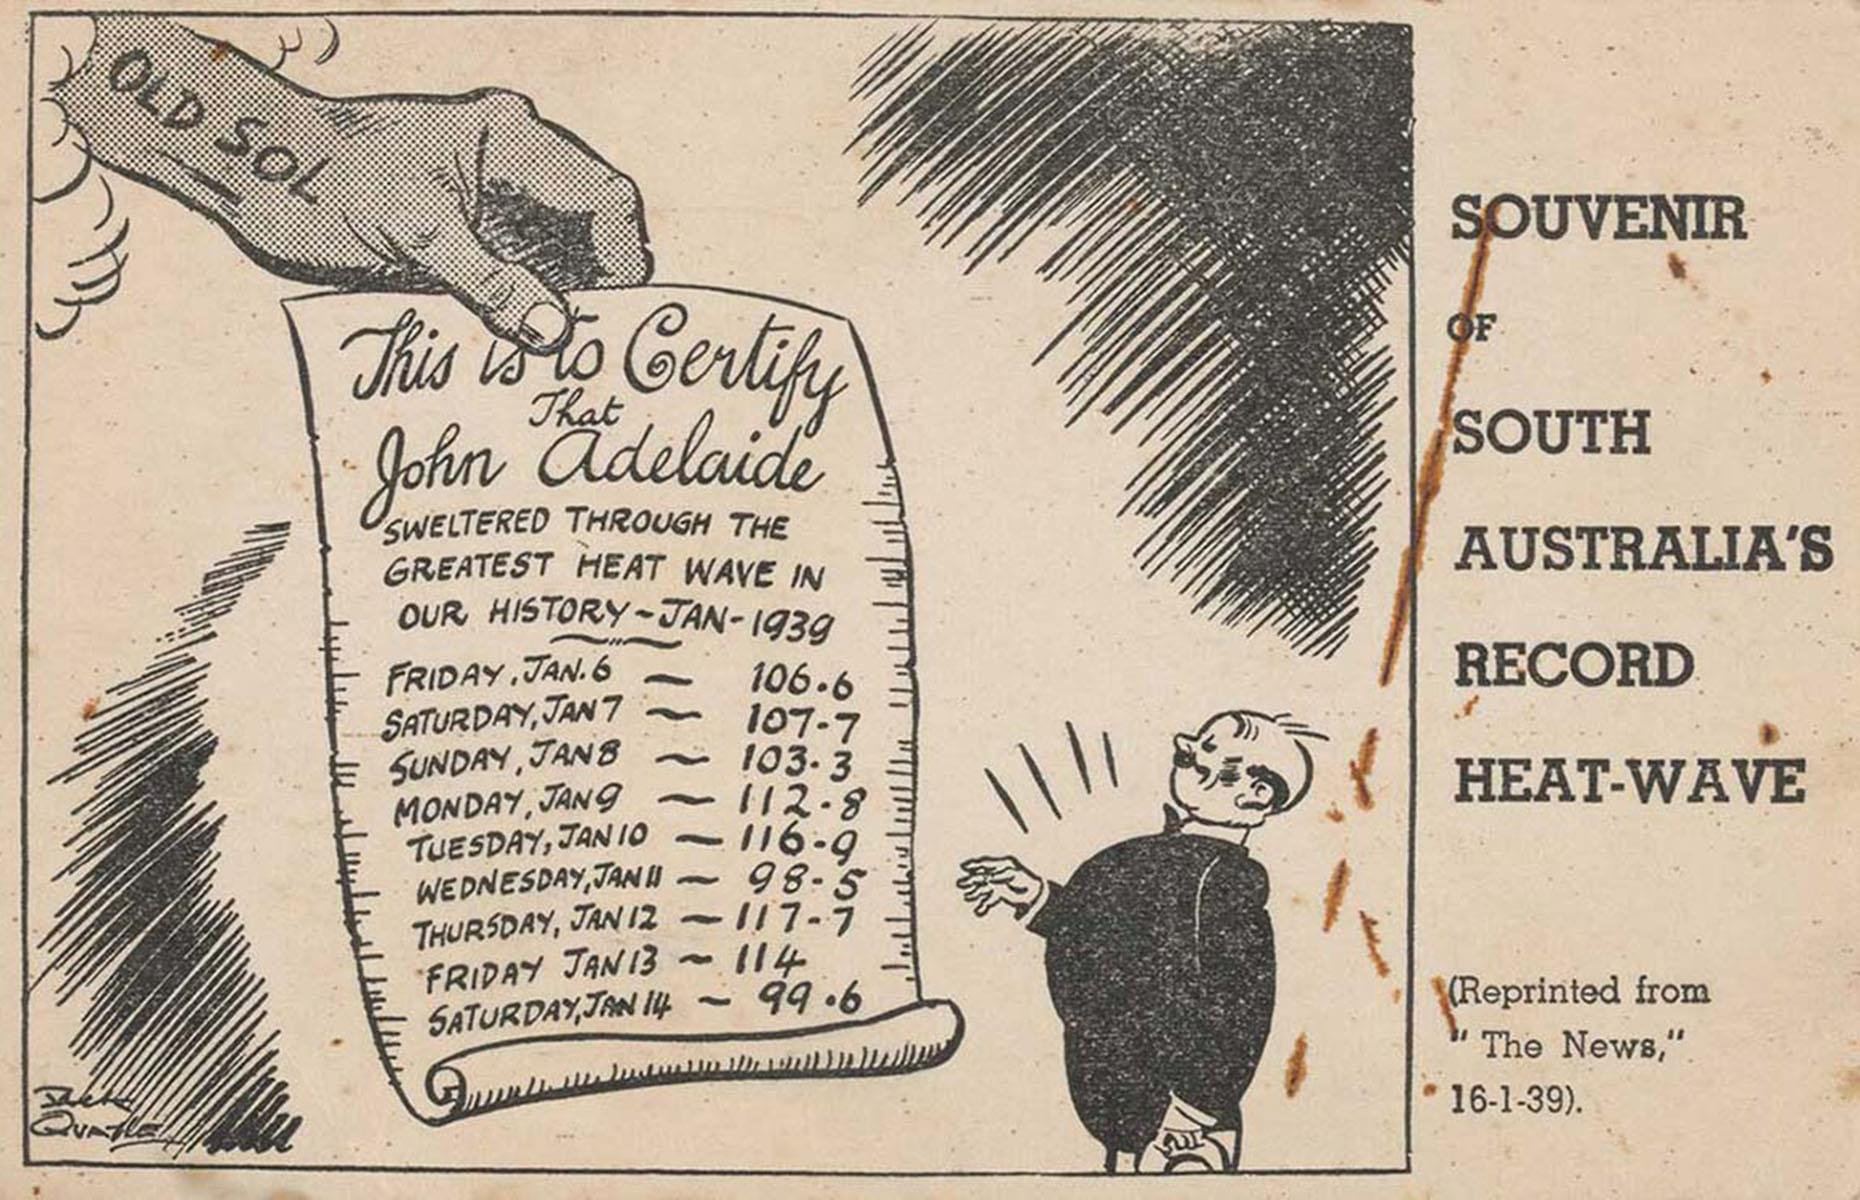 OLD SOL
This is to Certify
That
John Adelaide
SWELTERED THROUGH THE
GREATEST HEAT WAVE IN
OUR HISTORY ~ JAN - 1939
FRIDAY, JAN. 6 ~ 106.6
SATURDAY, JAN 7 ~ 107-7
SUNDAY, JAN 8 ~ 103.3
MONDAY, JAN 9 ~ 112-8
TUESDAY, JAN 10 ~ 116-9
WEDNESDAY, JAN 11 ~ 98-5
THURSDAY, JAN 12 ~ 117-7
FRIDAY JAN 13 ~ 114
SATURDAY, JAN 14 ~ 99.6
SOUVENIR
OF
SOUTH
AUSTRALIA'S
RECORD
HEAT-WAVE
(Reprinted from
"The News,"
16-1-39).